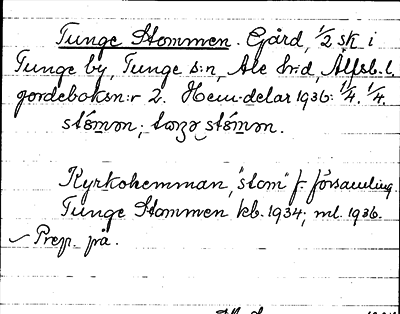 Tunge Stommen. Gård, 1/2 sk i
Tunge by, Tunge s:n, Ale h:d, Älfsb. l.
jordeboksn:r 2. Hem.delar 1936: 1/4. 1/4.
Kyrkohemman, "stom" f. församling.
Tunge Stommen kb. 1934; ml. 1936.
✓ Prep. på.